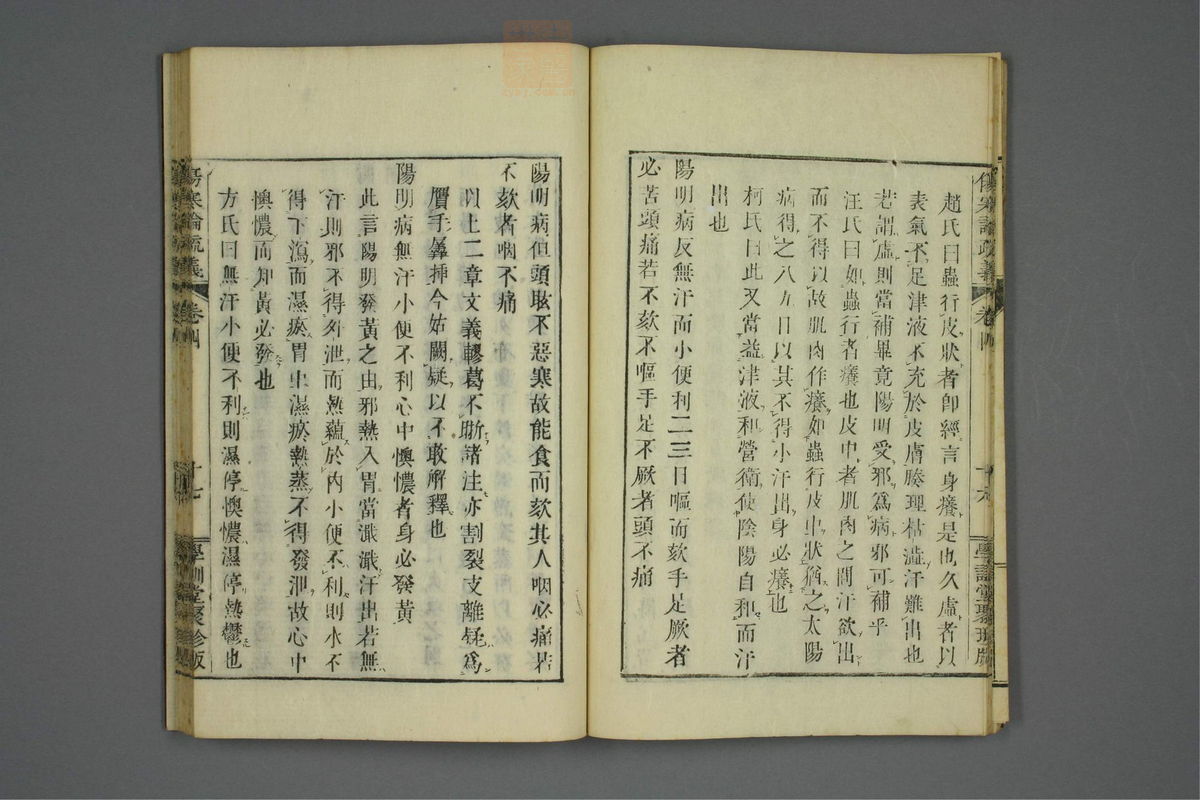 傷寒論疏義 卷四 十六 學訓堂聚珍版
趙氏曰蟲行皮狀者卽經言身癢是也久虛者以
表氣不足津液不充於皮膚腠理枯澁汗難出也
若謂虛則當補畢竟陽明受邪爲病邪可補乎
汪氏曰如蟲行者癢也皮中者肌肉之間汗欲出
而不得以故肌肉作癢如蟲行皮中狀猶之太陽
病得之八九日以其不得小汗出身必癢也
柯氏曰此又當益津液和營衛使陰陽自和而汗
出也
陽明病反無汗而小便利二三日嘔而欬手足厥者
必苦頭痛若不欬不嘔手足不厥者頭不痛
陽明病但頭眩不惡寒故能食而欬其人咽必痛若
不欬者咽不痛
以上二章文義轇葛不晰諸注亦割裂支離毫爲
贋手羼挿今姑闕疑以不敢解釋也
陽明病無汗小便不利心中懊憹者身必發黃
此言陽明發黃之由邪熱入胃當濈濈汗出若無
汗則邪不得外泄而熱蘊於內小便不利則水不
得下瀉而濕瘀胃中濕瘀熱蒸不得發泄故心中
懊憹而知黃必發也
方氏曰無汗小便不利則濕停懊憹濕停熱鬱也
傷寒論疏義 卷四 十七 學訓堂聚珍版